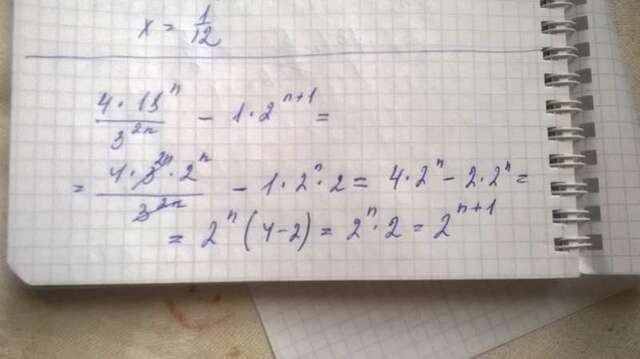 x = 1/12
(4 · 18^n)/(3^(2n)) - 1 · 2^(n+1) =
= (4 · 3^(2n) · 2^n)/(3^(2n)) - 1 · 2^n · 2 = 4 · 2^n - 2 · 2^n =
= 2^n (4-2) = 2^n · 2 = 2^(n+1)